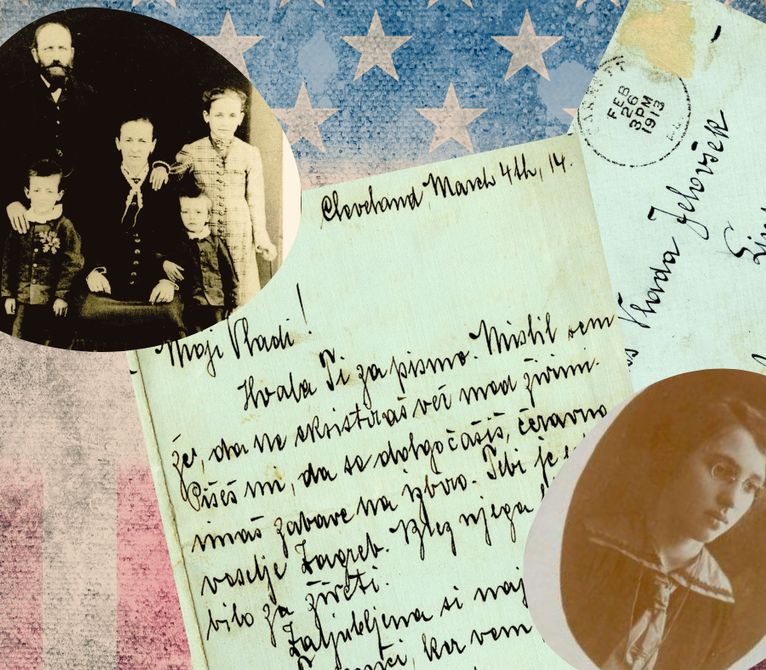 Cleveland March 4th, 14.
Moji Vladi!
Hvala Ti za pismo. Mislil sem
že, da ne eksistiraš več med živimi.
Pišeš mi, da se dolgočasiš, čeravno
imaš zabave na izbiro. Tebi je
veselje Zagreb. Brez njega
bilo za živeti.
Zaljubljena si naj
ker vem
FEB
26
3 PM
1913
Vlada Jelovšek